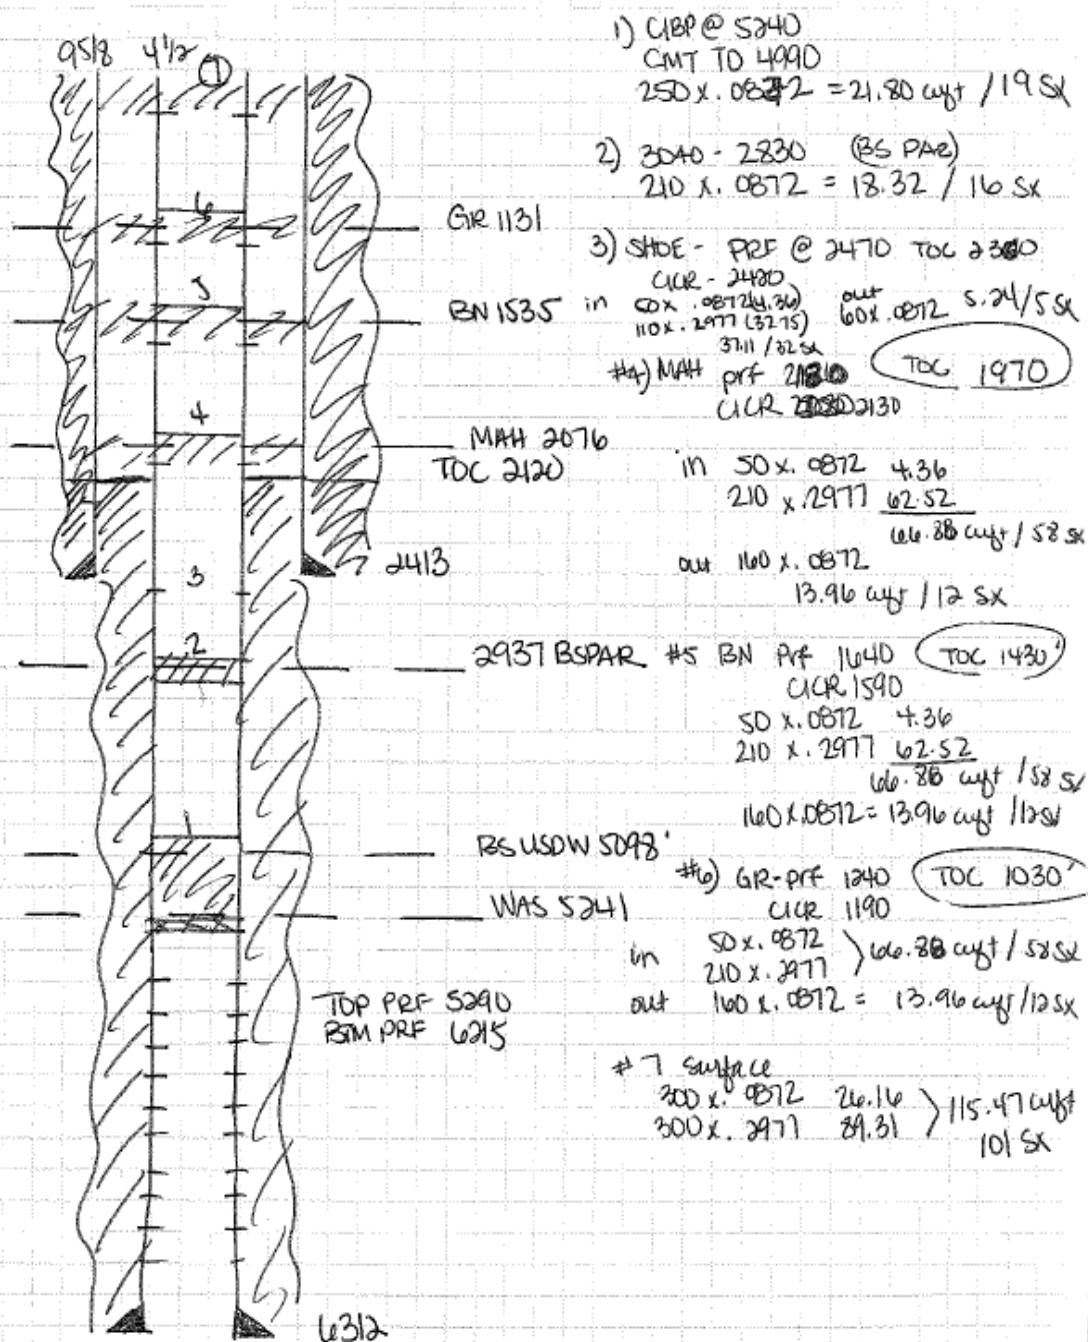 9 5/8 4 1/2
7
6
GR 1131
5
BN 1535
4
MAH 2076
TOC 2120
2413
3
2
2937 BSPAR
1
BS USDW 5098'
WAS 5241
TOP PRF 5290
BTM PRF 6215
6312
1) CIBP @ 5240
CMT TO 4990
250 x .0872 = 21.80 cuft / 19 SX
2) 3040 - 2830 (BS PAR)
210 x .0872 = 18.32 / 16 SX
3) SHOE - PRF @ 2470 TOC 2360
CICR - 2420
in 50 x .0872 (4.36) out 60 x .0872 5.24/5 SX
110 x .2977 (32.75)
37.11 / 32 SX
#4) MAH prf 2180 TOC 1970
CICR 2130
in 50 x .0872 4.36
210 x .2977 62.52
66.88 cuft / 58 SX
out 160 x .0872
13.96 cuft / 12 SX
#5 BN Prf 1640 TOC 1430'
CICR 1590
50 x .0872 4.36
210 x .2977 62.52
66.88 cuft / 58 SX
160 x .0872 = 13.96 cuft / 12 SX
#6) GR - prf 1240 TOC 1030'
CICR 1190
in 50 x .0872
210 x .2977 66.88 cuft / 58 SX
out 160 x .0872 = 13.96 cuft / 12 SX
#7 Surface
300 x .0872 26.16
300 x .2977 89.31 115.47 cuft
101 SX